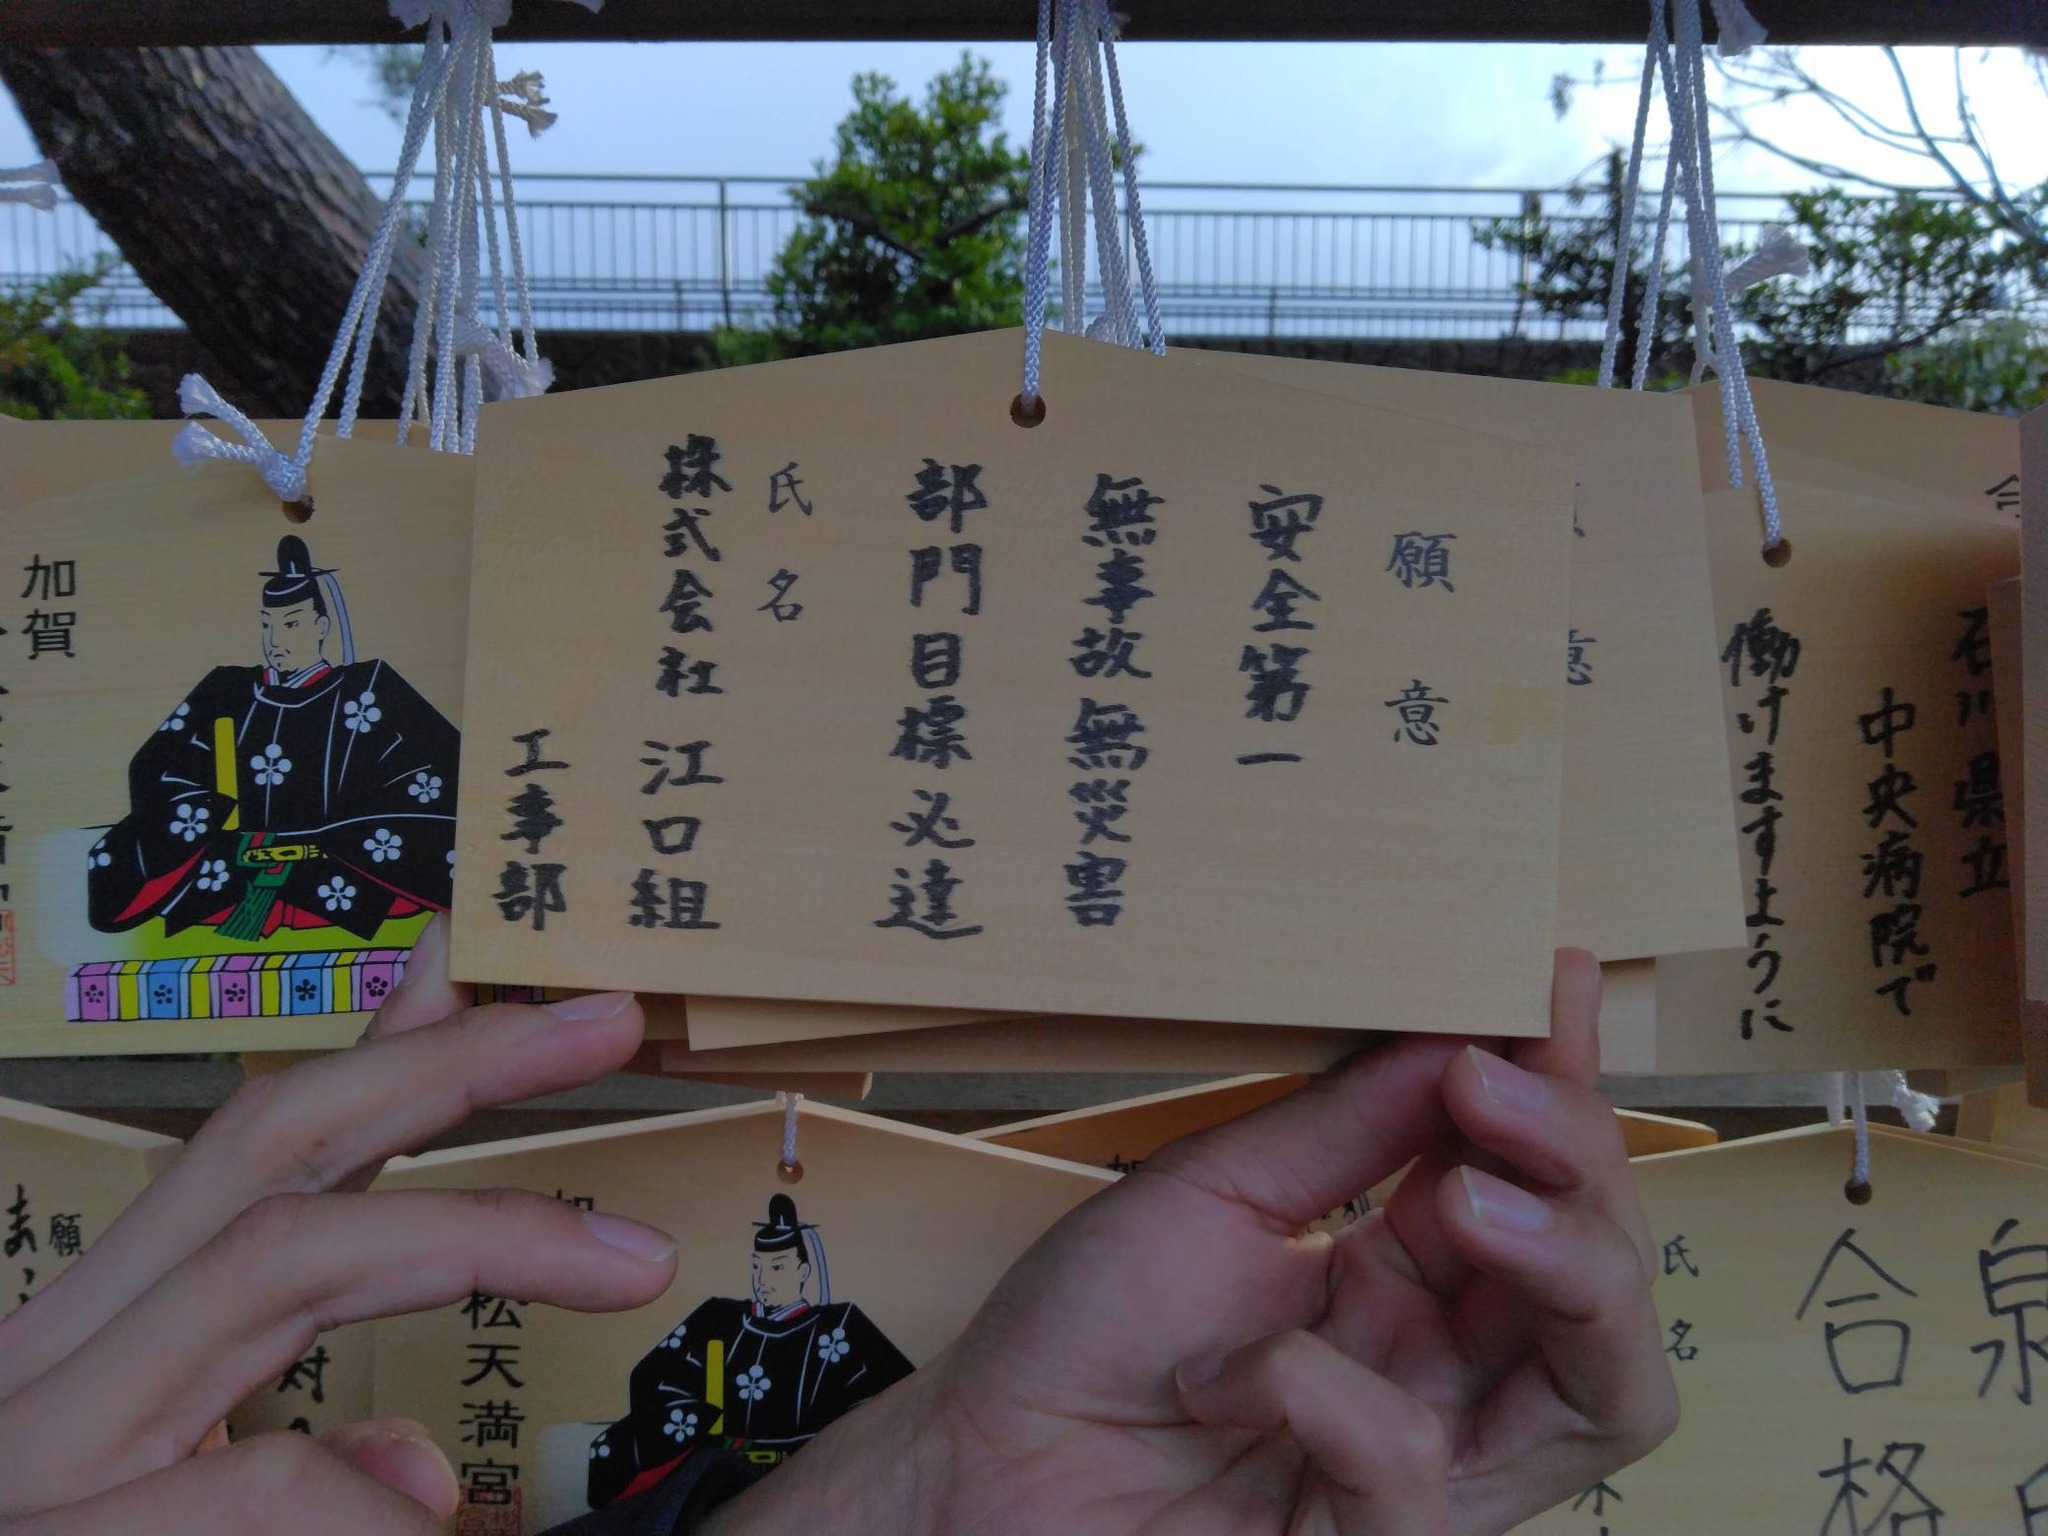 願意
安全第一
無事故 無災害
部門目標必達
氏名
株式会社 江口組
工事部
石川県立
中央病院で
働けますように
加賀
意
願
氏名
合格
松天満宮